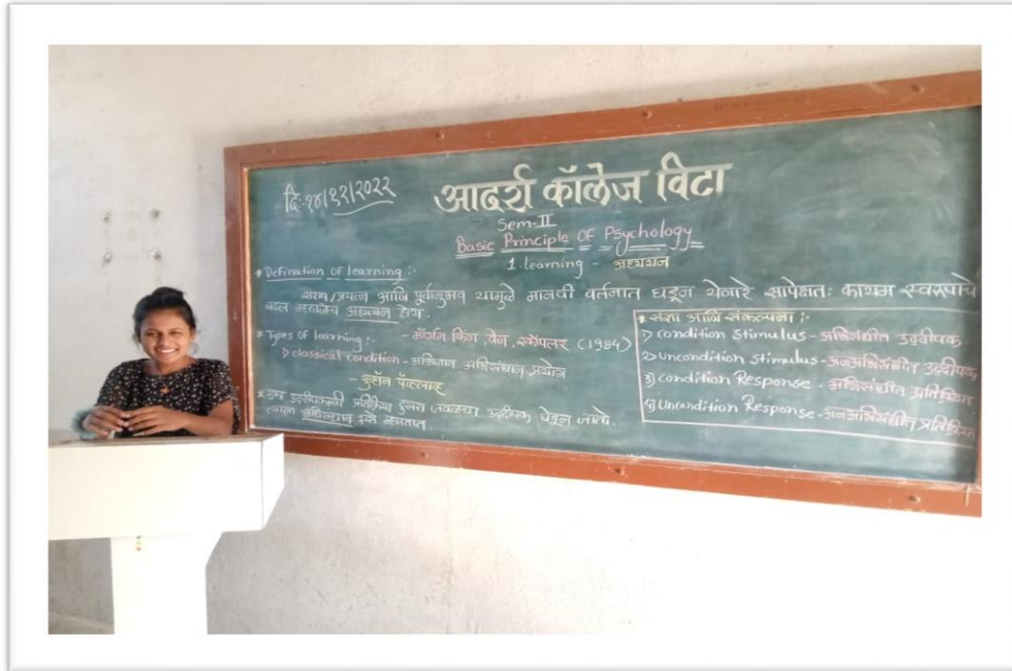 दि:-१४/१२/२०२२
आदर्श कॉलेज विटा
Sem-II
Basic Principle OF Psychology
1. learning - अध्ययन
* Defination of learning :-
सराव/प्रयत्न आणि पूर्वानुभव यामुळे मानवी वर्तनात घडून येणारे सापेक्षतः कायम स्वरूपाचे
बदल म्हणजेच अध्ययन होय.
* Types of learning :- - मॉर्गन किंग, वेज, स्कॉपलर (1984)
1) classical condition - अभिजात अभिसंधान प्रयोग
- इव्हॉन पॅव्हलाव्ह
* एका उद्दीपकाची प्रतिक्रिया दुसऱ्या जवळच्या उद्दीपक घेवून जाते.
त्याला अभिसंधान असे म्हणतात.
* संज्ञा आणि संकल्पना :-
1) condition Stimulus - अभिसंधीत उद्दीपक
2) Uncondition Stimulus - अनअभिसंधीत उद्दीपक
3) condition Response - अभिसंधीत प्रतिक्रिया
4) Uncondition Response - अनअभिसंधीत प्रतिक्रिया